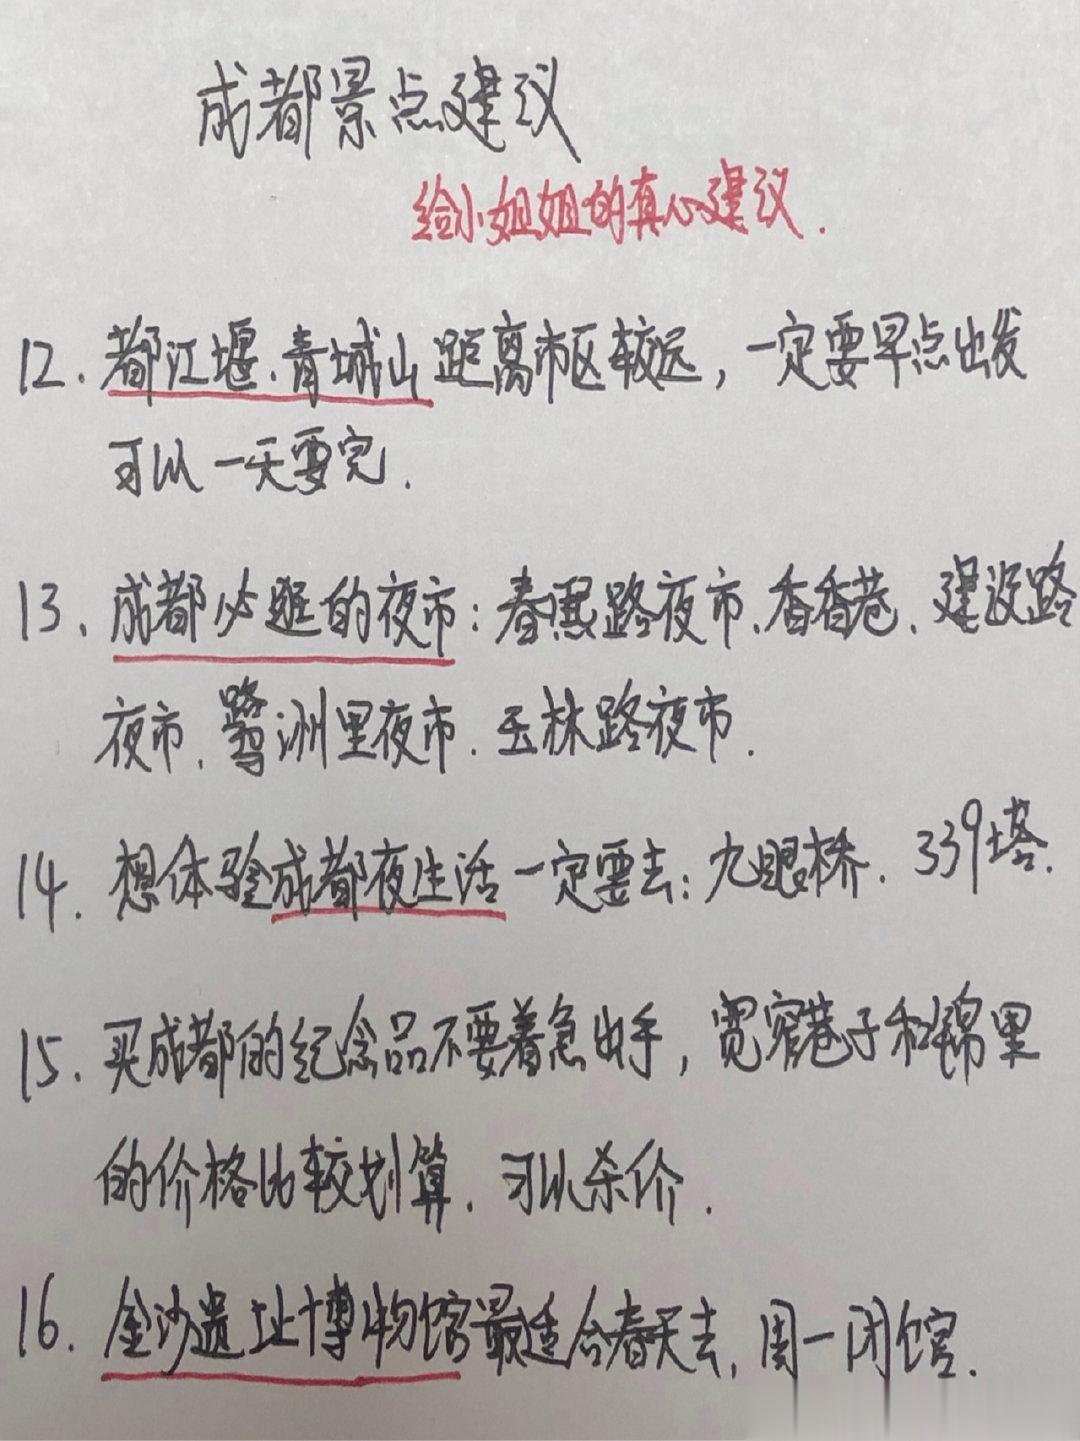 成都景点建议
给小姐姐的真心建议.
12. 都江堰、青城山距离市区较远，一定要早点出发
可以一天耍完.
13、成都必逛的夜市：春熙路夜市、香香巷、建设路
夜市、鹭洲里夜市、玉林路夜市.
14. 想体验成都夜生活一定要去：九眼桥、339塔.
15、买成都的纪念品不要着急出手，宽窄巷子和锦里
的价格比较划算、可以杀价.
16. 金沙遗址博物馆最适合春天去，周一闭馆.